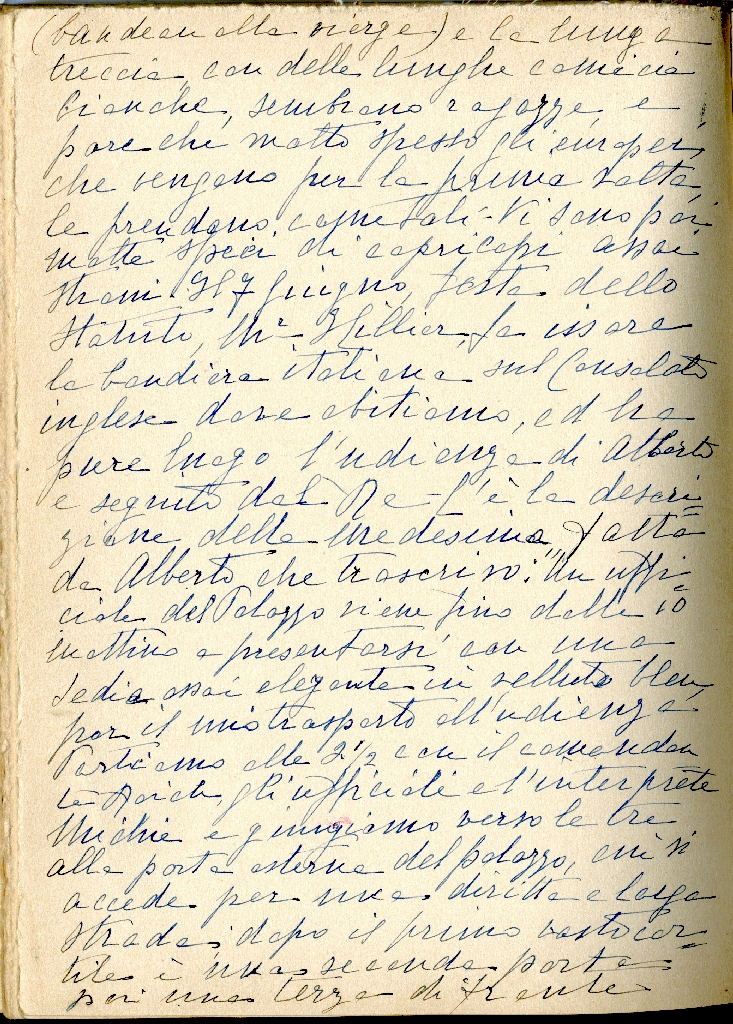 (bandeau alla vierge) e la lunga
treccia, con delle lunghe camicie
bianche, sembrano ragazze, e
pare che molto spesso gli europei,
che vengano per la prima volta,
le prendano come tali - Vi sono poi
molte speci di capricapi assai
strani. Il 7 giugno, festa dello
Statuto, Mr Hillier, fa issare
la bandiera italiana sul Consolato
inglese dove abitiamo, ed ha
pure luogo l'udienza di Alberto
e seguito dal Re - C'è la descri=
zione della medesima, fatta
da Alberto, che trascrivo: "Un uffi-
ciale del Palazzo viene fino dalle 10
mattino a presentarsi con una
sedia assai elegante in velluto bleu,
per il mio trasporto all'udienza.
Partiamo alle 2 1/2 con il comandan
te gli ufficiali e l'interprete
e giungiamo verso le tre
alla porta esterna del palazzo, cui si
accede per una diritta e larga
strada; dopo il primo vasto cor=
tile è una seconda porta
poi una terza di fronte